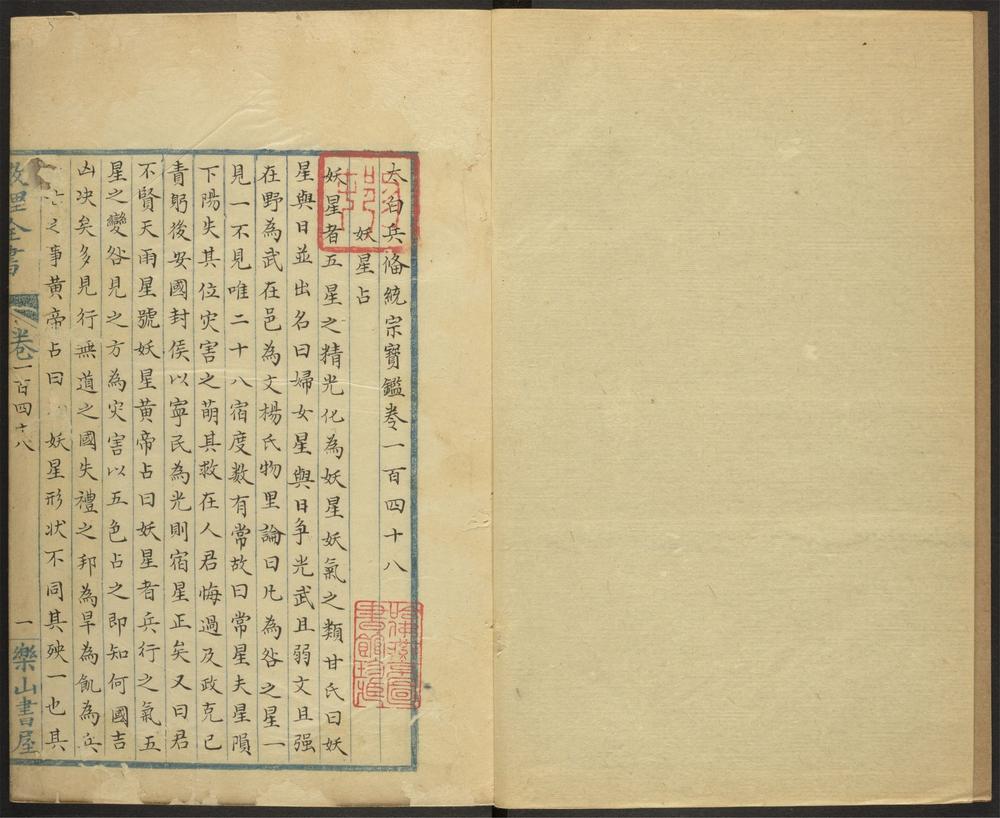 太白兵俻統宗寶鑑卷一百四十八
妖星占
妖星者五星之精光化為妖星妖氣之類甘氏曰妖
星與日並出名曰婦女星與日爭光武且弱文且强
在野為武在邑為文楊氏物里論曰凡為咎之星一
見一不見唯二十八宿度数有常故曰常星夫星隕
下陽失其位灾害之萌其救在人君悔過及政克已
青躬後安國封侯以寧民為光則宿星正矣又曰君
不賢天雨星號妖星黄帝占曰妖星者兵行之氣五
星之變咎見之方為灾害以五色占之即知何國吉
凶决矣多見行無道之國失禮之邦為旱為飢為兵
之事黄帝占曰妖星形狀不同其殃一也其
理全書 卷一百四十八 一 樂山書屋
哈佛燕京圖書館珍藏